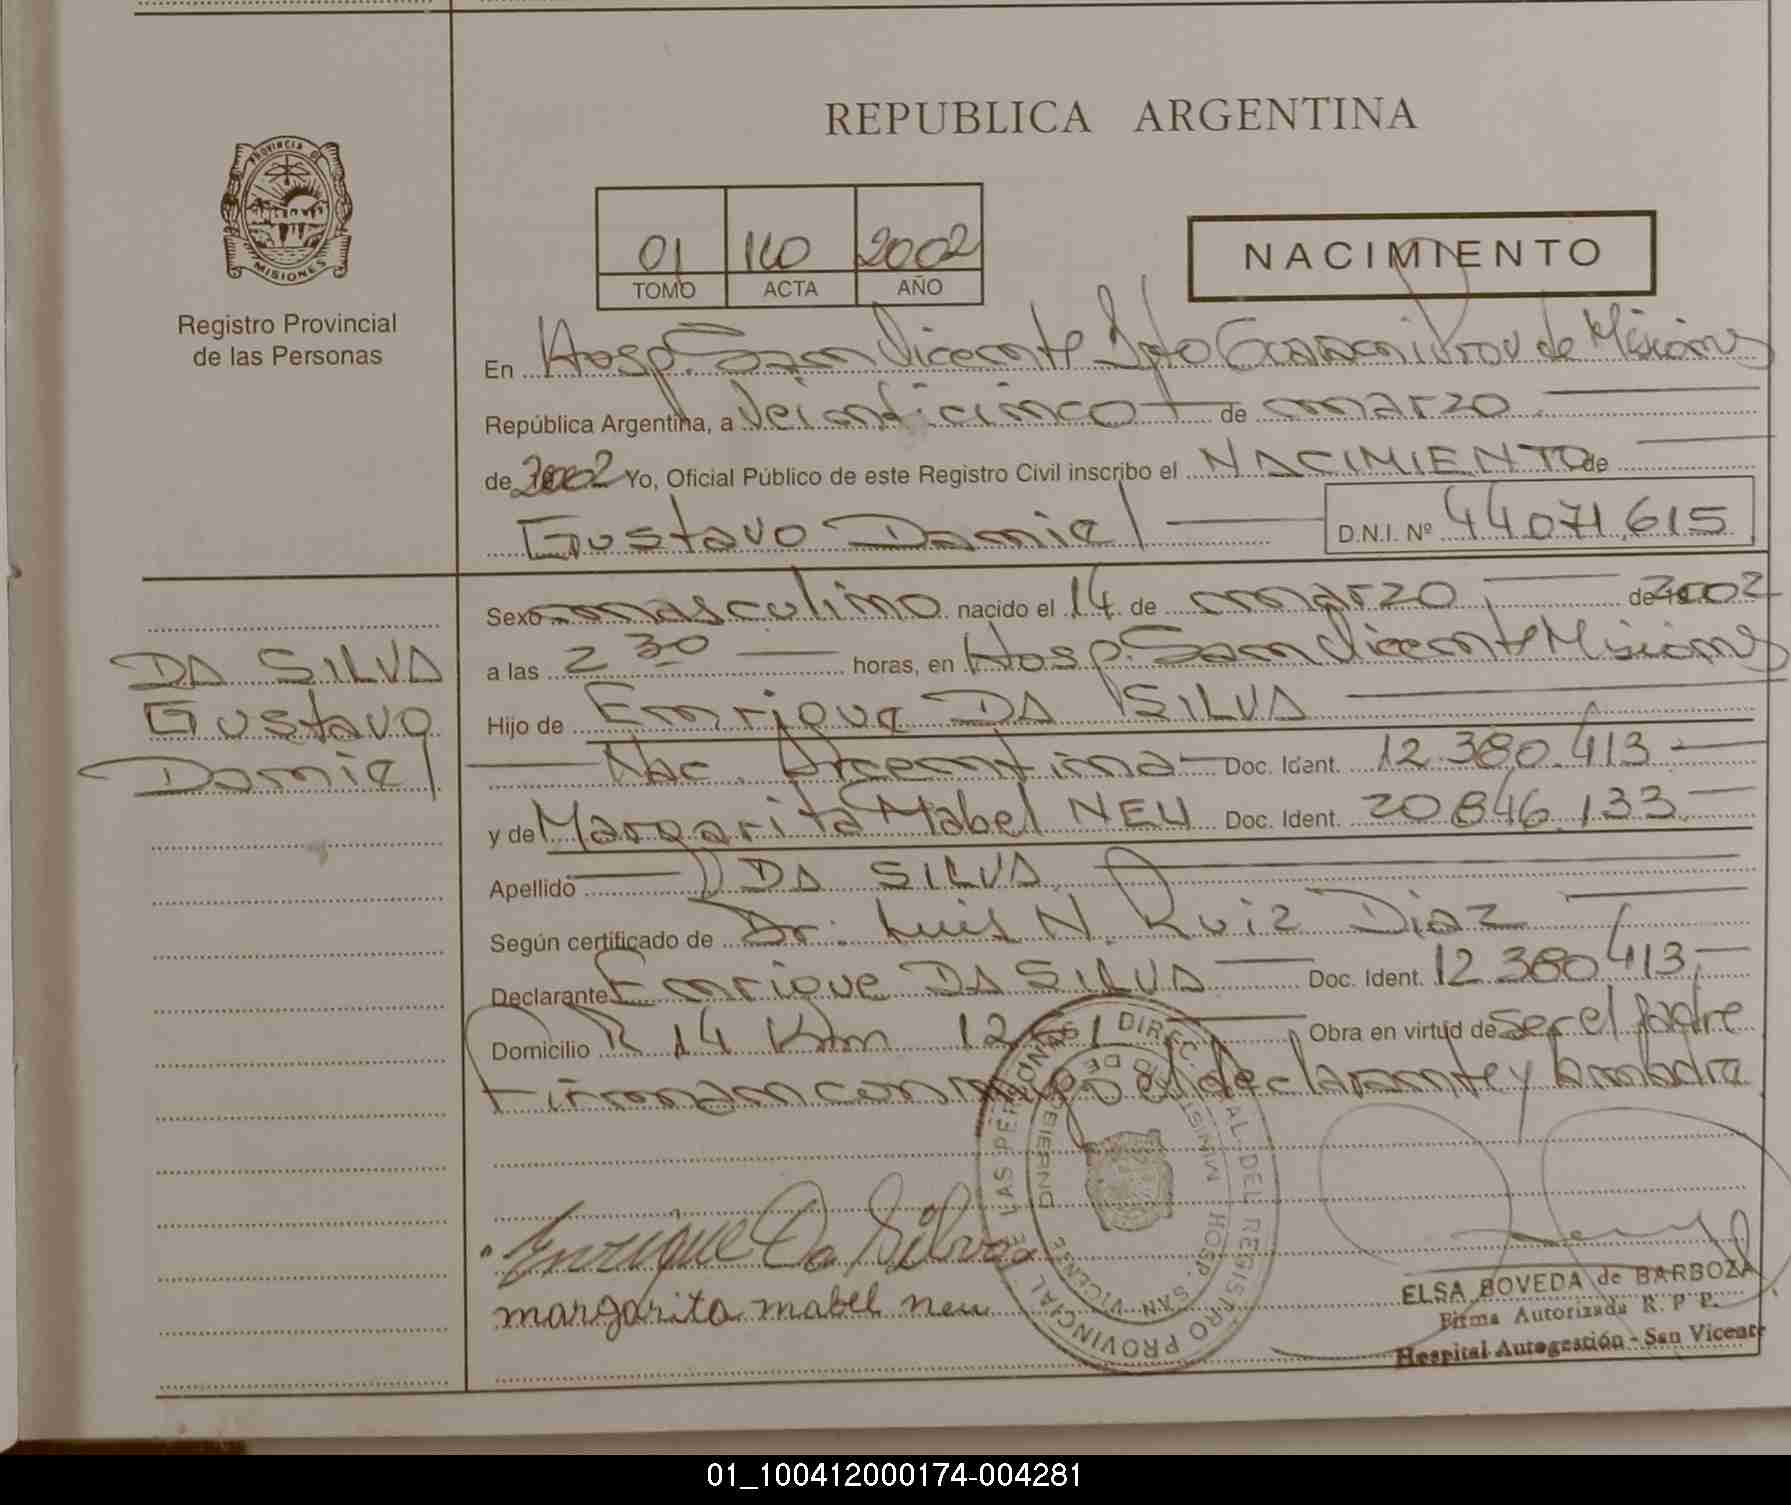 REPUBLICA ARGENTINA
PROVINCIA DE
MISIONES
Registro Provincial
de las Personas
01 110 2002
TOMO ACTA AÑO
NACIMIENTO
En Hosp. San Vicente Dpto Guarani Prov de Misiones
República Argentina, a Veinticinco de marzo
de 2002 Yo, Oficial Público de este Registro Civil inscribo el NACIMIENTO de
Gustavo Daniel D.N.I. Nº 44071.615
Sexo masculino nacido el 14 de marzo de 2002
a las 2 30 horas, en Hosp. San Vicente Misiones
Hijo de Enrique DA SILVA
Nac. Argentina Doc. Ident. 12.380.413
y de Margarita Mabel NEU Doc. Ident. 20 846.133
Apellido DA SILVA
Según certificado de Dr. Luis N. Ruiz Diaz
Declarante Enrique DA SILVA Doc. Ident. 12 380 413
Domicilio R 14 Km 1261 Obra en virtud de ser el padre
Firman conmigo el declarante y la madre
DA SILVA
Gustavo
Daniel
Enrique Da Silva
margarita mabel neu
DIREC. PROVINCIAL DEL REGISTRO PROVINCIAL DE LAS PERSONAS
HOSP. SAN VICENTE
ELSA BOVEDA de BARBOZA
Firma Autorizada R. P. P.
Hospital Autogestión - San Vicente
01_100412000174-004281